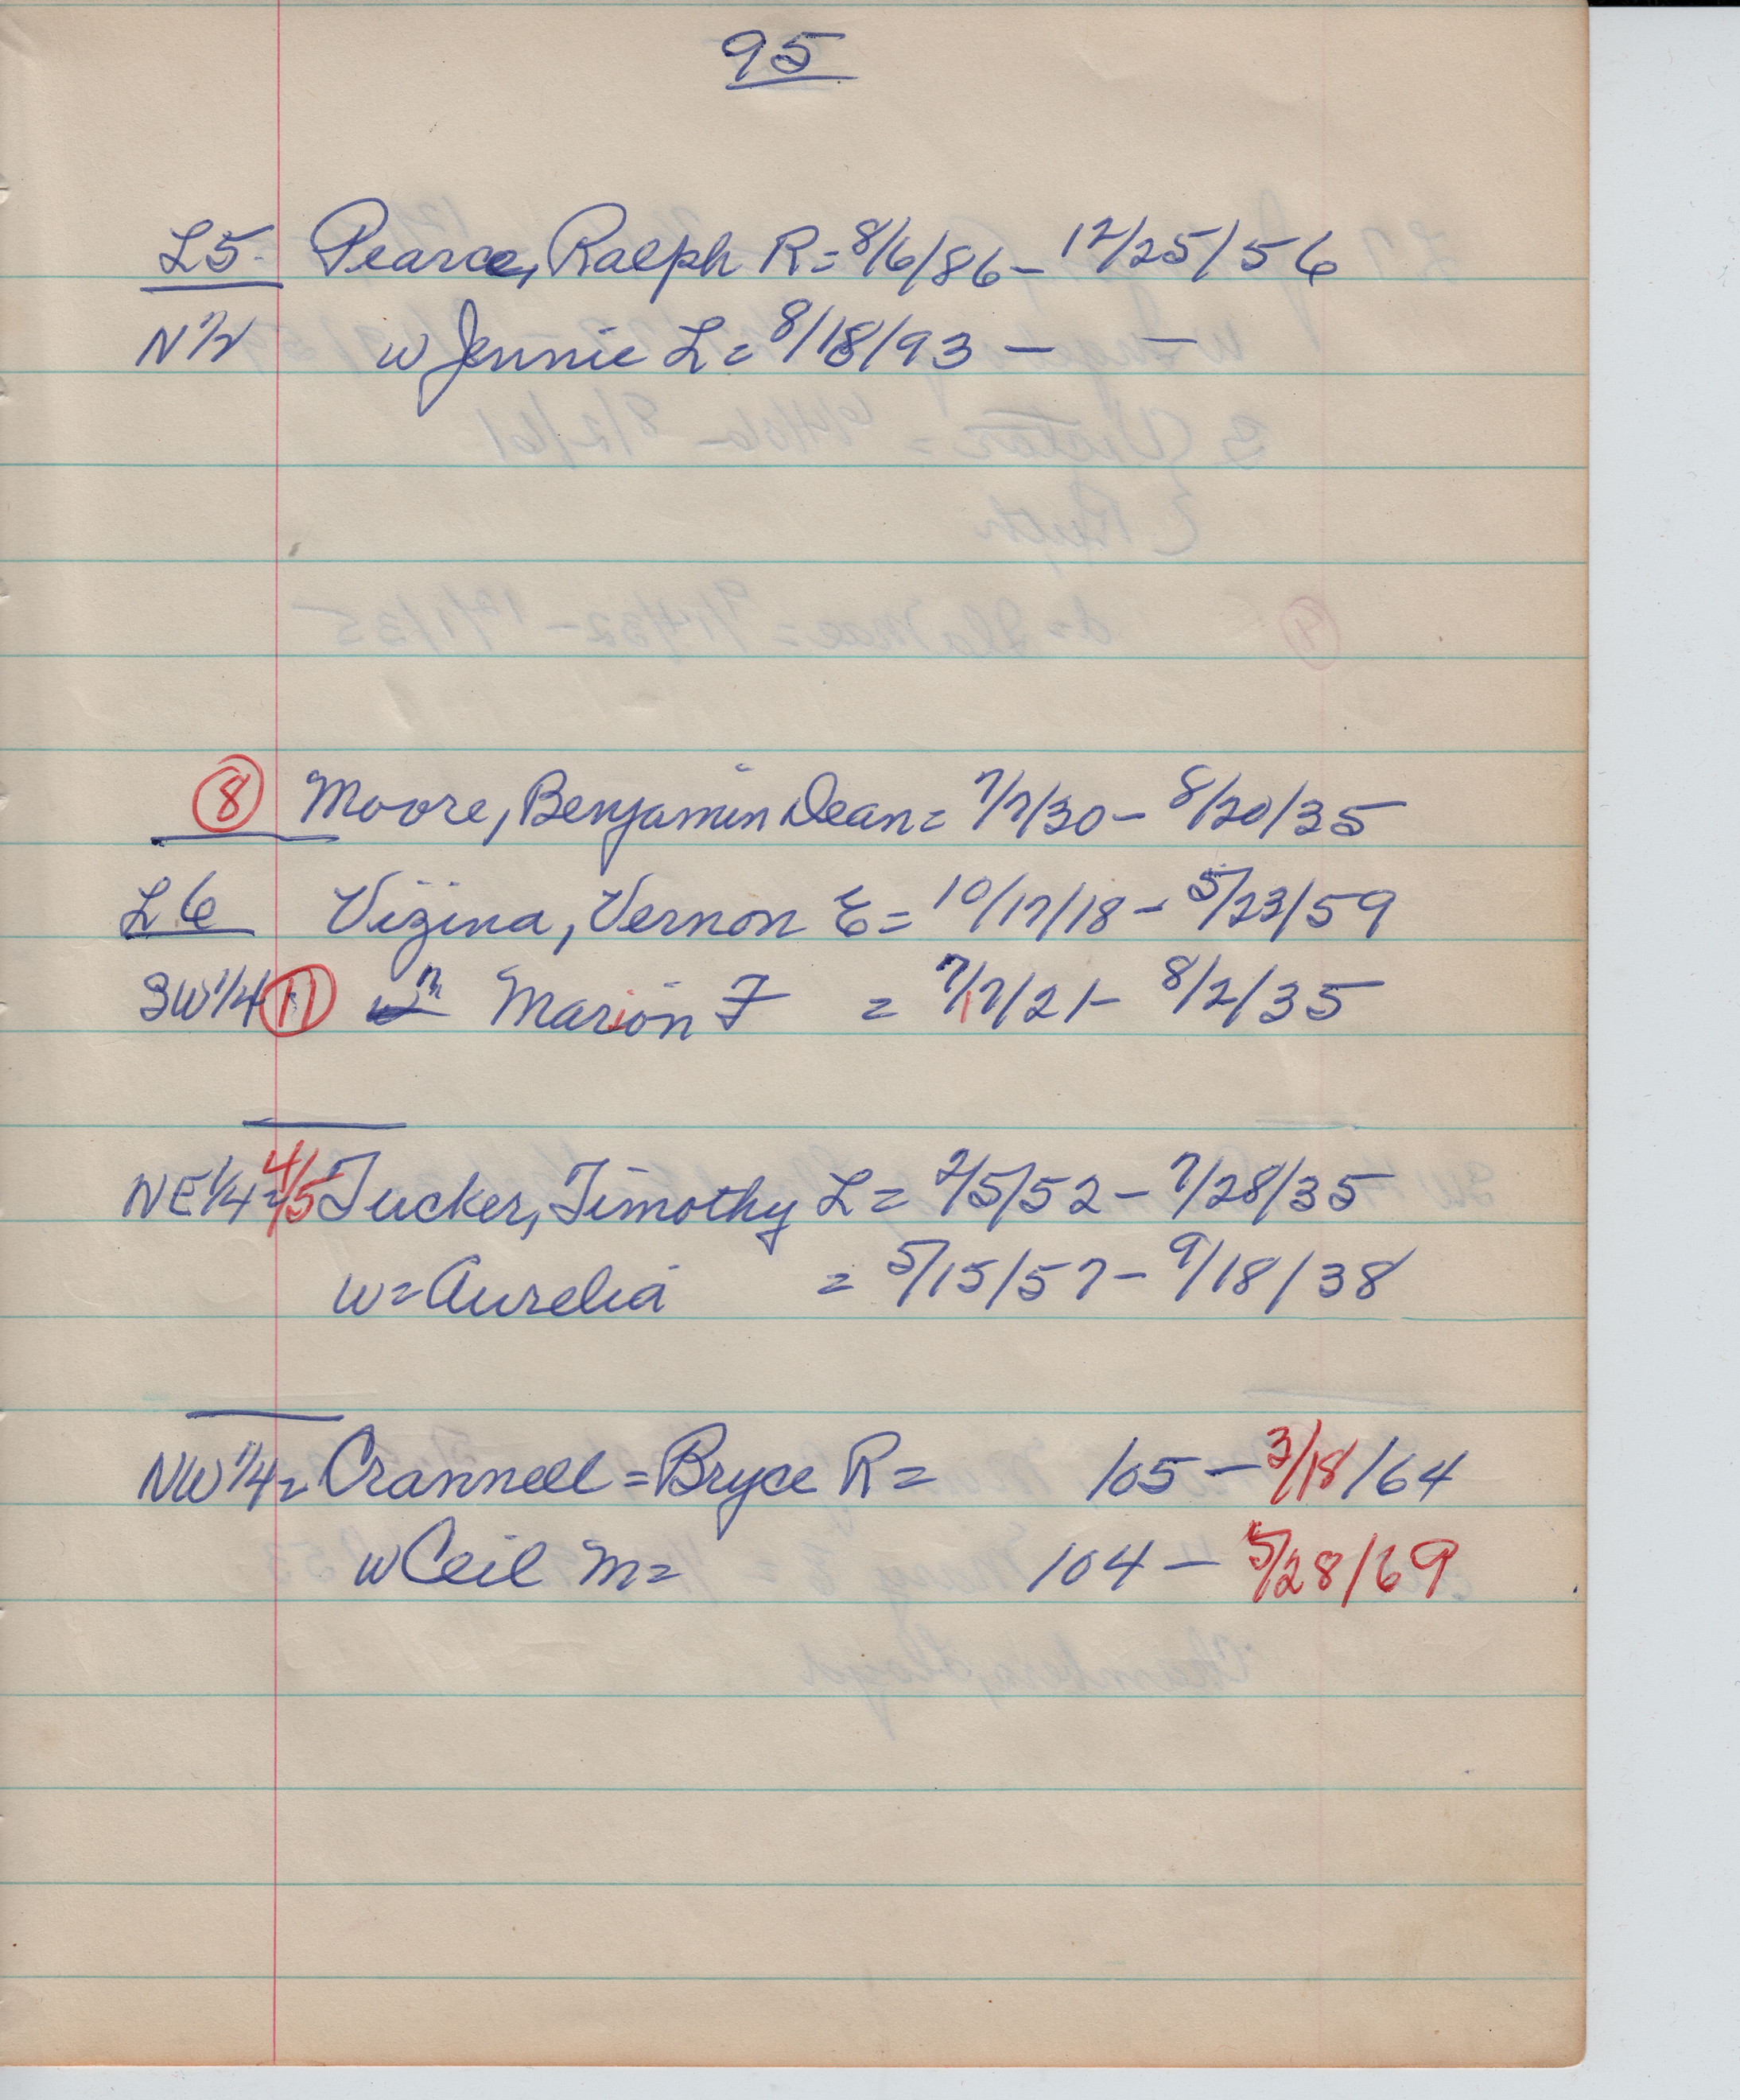 95
L5- Pearce, Ralph R = 8/6/86 - 12/25/56
N½ w Jennie L = 8/18/93 - -
8 Moore, Benjamin Dean = 7/7/30 - 8/20/35
L6 Vizina, Vernon E = 10/17/18 - 5/23/59
SW 1/4 11 Marion F = 7/7/21 - 8/2/35
NE 1/4 = 4/5 Tucker, Timothy L = 2/5/52 - 7/28/35
w = Aurelia = 5/15/57 - 9/18/38
NW 1/4 = Crannell = Bryce R = 105 - 3/18/64
w Ceil M = 104 - 5/28/69